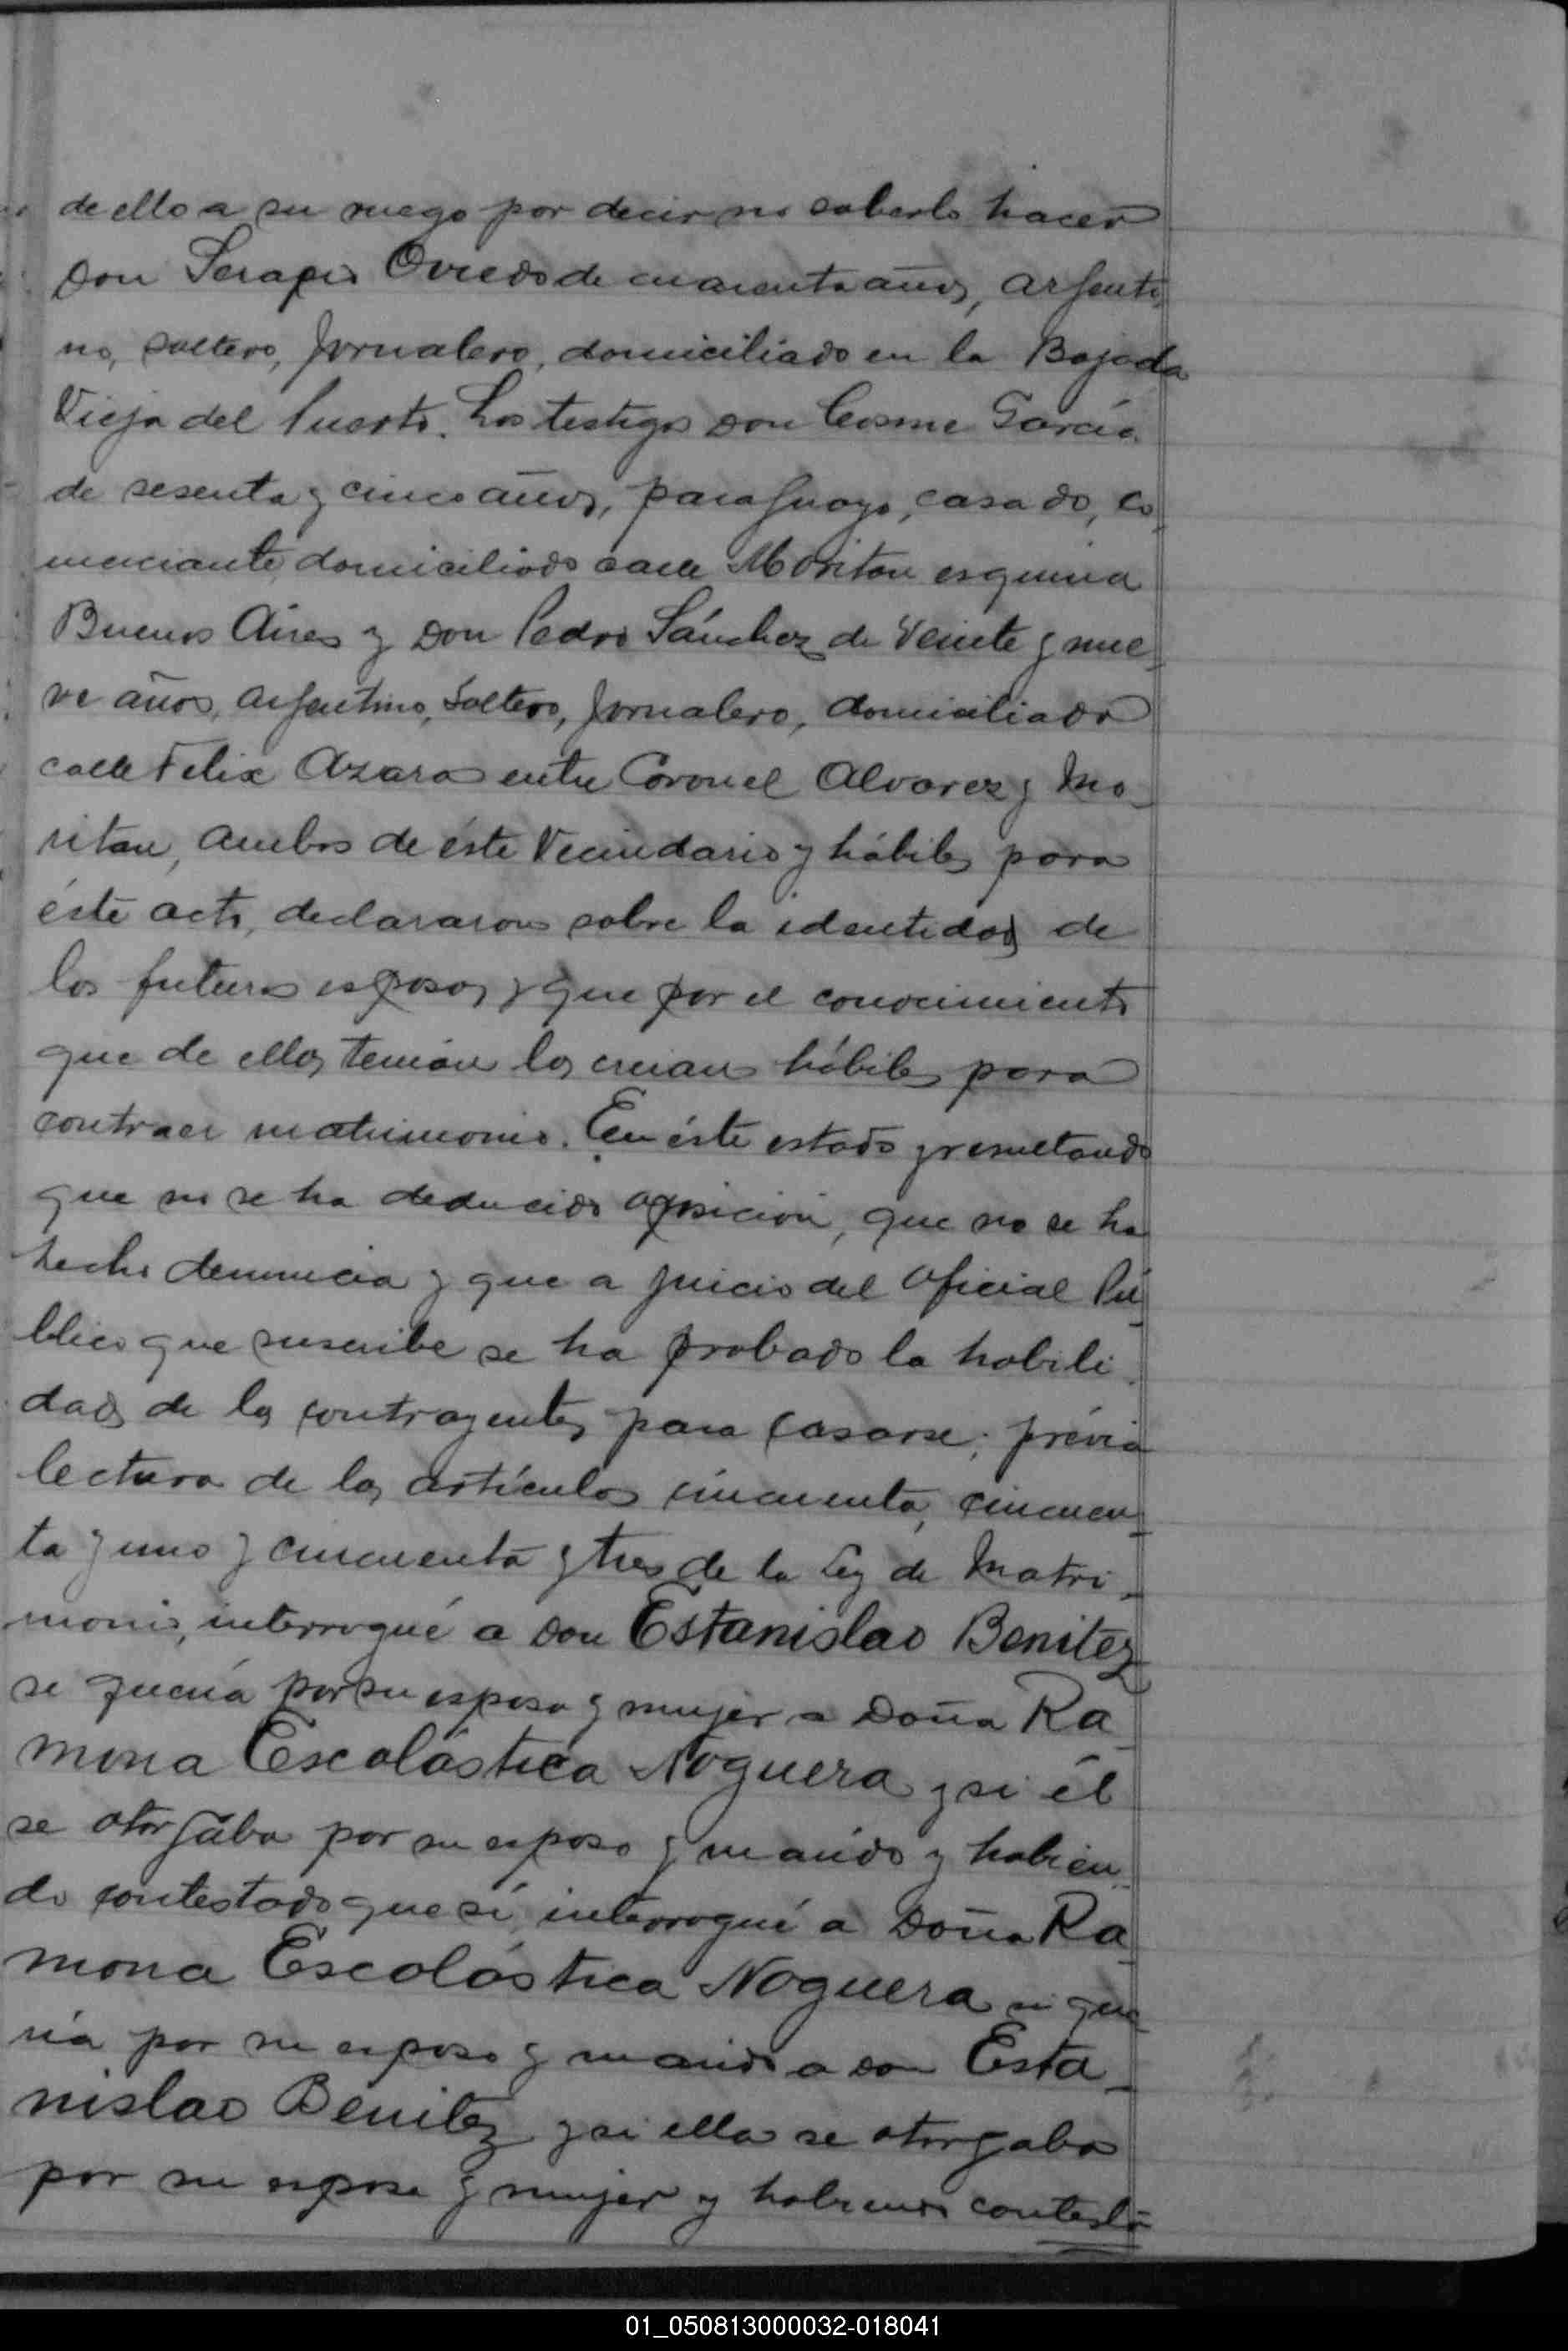 de ello a su ruego por decir no saberlo hacer
Don Serapio Oviedo de cuarenta años, argenti
no, soltero, jornalero, domiciliado en la Bajada
Vieja del Puerto. Los testigos Don Cosme García
de sesenta y cinco años, paraguayo, casado, co
merciante domiciliado calle Moritan esquina
Buenos Aires y Don Pedro Sánchez de veinte y nue
ve años, argentino, soltero, jornalero, domiciliado
calle Felix Azara entre Coronel Alvarez y Mo-
ritan, ambos de éste Vecindario y hábiles para
éste acto, declararon sobre la identidad de
los futuros esposos y que por el conocimiento
que de ellos tenían los creian hábiles para
contraer matrimonio. En éste estado y resultando
que no se ha deducido oposición, que no se ha
hecho denuncia y que a juicio del Oficial Pú-
blico que suscribe se ha probado la habili
dad de los contrayentes para casarse; prévia
lectura de los artículos cincuenta, cincuen-
ta y uno y cincuenta y tres de la Ley de Matri-
monio, interrogué a Don Estanislao Benitez
se quería por su esposa y mujer a Doña Ra
mona Escolástica Noguera y si él
se otorgaba por su esposo y marido y habien
do contestado que sí, interrogué a Doña Ra
mona Escolástica Noguera si que
ría por su esposo y marido a Don Esta-
nislao Benitez y si ella se otorgaba
por su esposa y mujer y habiendo contesta
01_050813000032-018041